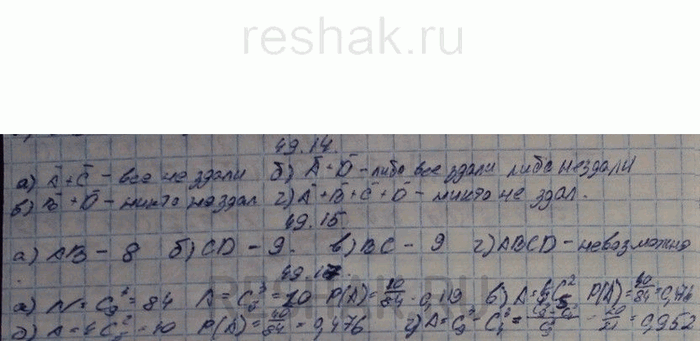 reshak.ru
49.14.
а) Ā+C̄ – все не здали б) Ā+D̄ – либо все здали либо нездали
в) B̄+D̄ – никто нездал г) Ā+B̄+C̄+D̄ – никто не здал.
49.15
а) AB – 8 б) CD – 9. в) BC – 9 г) ABCD – невозможно
49.17.
а) N = C = 84 A = C = 10 P(A) = 10/84 = 0,119 в) A = P(A) = 40/84 = 0,476
A = 4C = 40 P(A) = 40/84 = 0,476. г) A = = 20/21 = 0,952